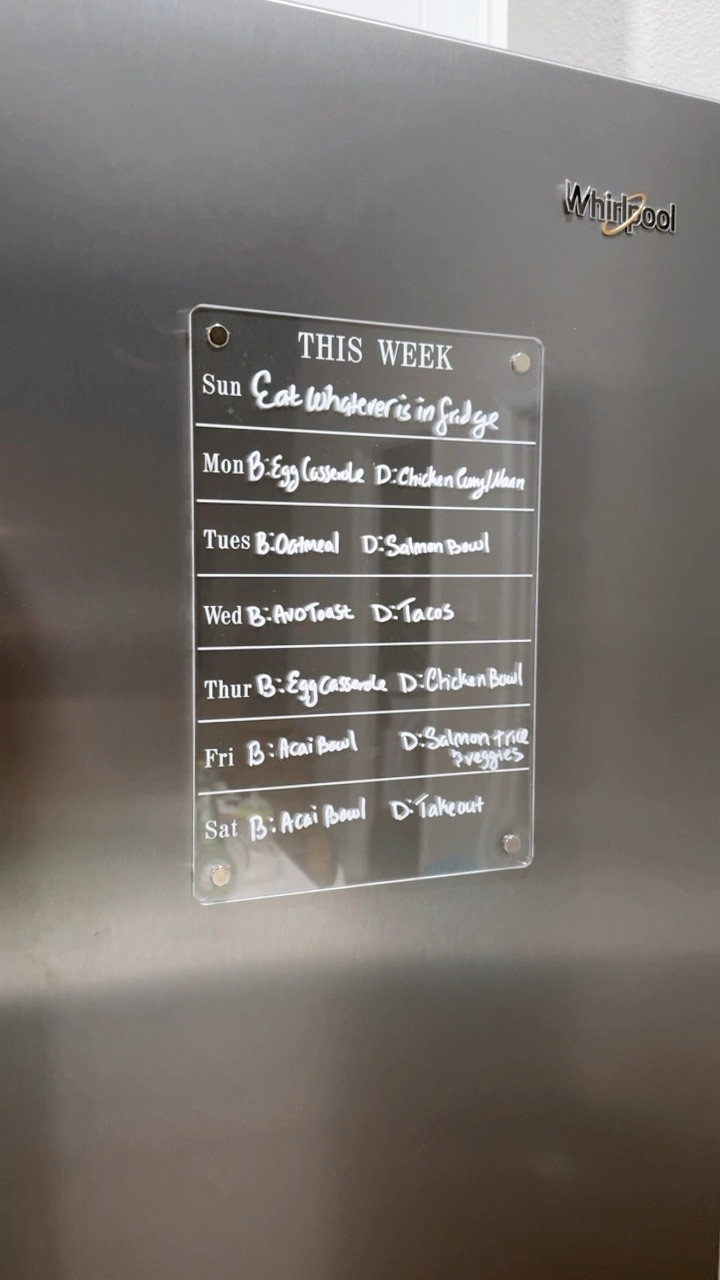 Whirlpool
THIS WEEK
Sun Eat Whatever is in fridge
Mon B:Egg Casserole D:Chicken Curry/Naan
Tues B:Oatmeal D:Salmon Bowl
Wed B:Avo Toast D:Tacos
Thur B:Egg Casserole D:Chicken Bowl
Fri B:Acai Bowl D:Salmon + rice
& veggies
Sat B:Acai Bowl D:Takeout